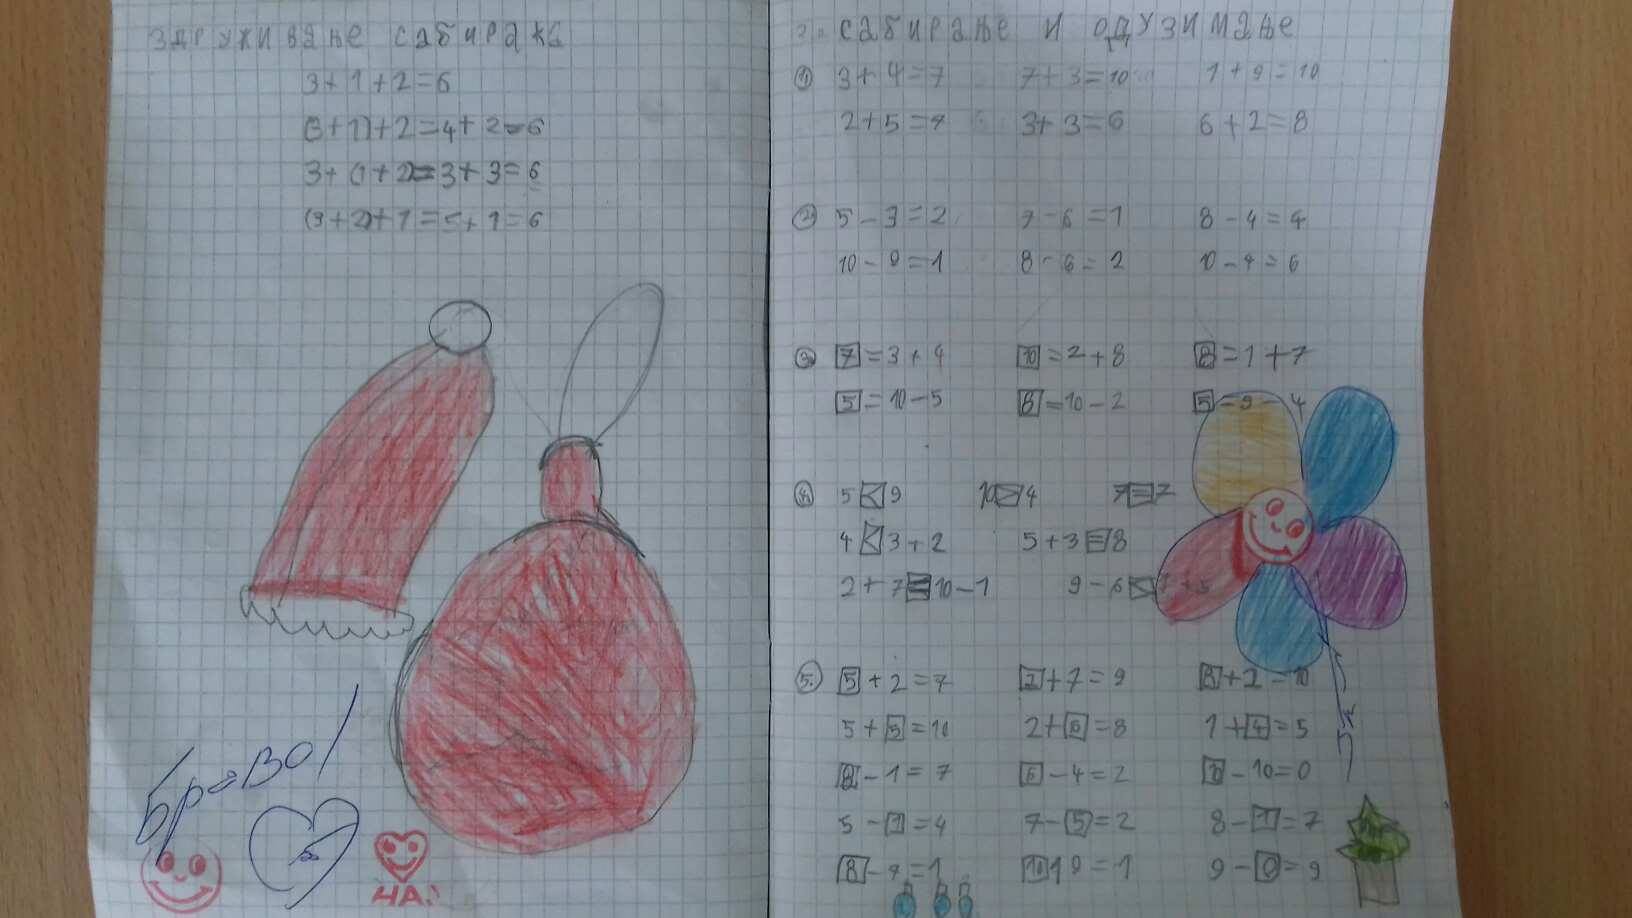 здруживање сабирака
3+1+2=6
(3+1)+2=4+2=6
3+(1+2)=3+3=6
(3+2)+1=5+1=6
Браво!
5
НА!
сабирање и одузимање
1) 3+4=7 7+3=10 1+9=10
2+5=7 3+3=6 6+2=8
2) 5-3=2 7-6=1 8-4=4
10-9=1 8-6=2 10-4=6
3) 7=3+4 10=2+8 8=1+7
5=10-5 8=10-2 5=9-4
4) 5<9 10>4 7=7
4<3+2 5+3=8
2+7=10-1 9-6<
5. 5+2=7 2+7=9 8+2=10
5+5=10 2+6=8 1+4=5
8-1=7 6-4=2 10-10=0
5-1=4 7-5=2 8-1=7
8-7=1 10-9=1 9-0=9
5+